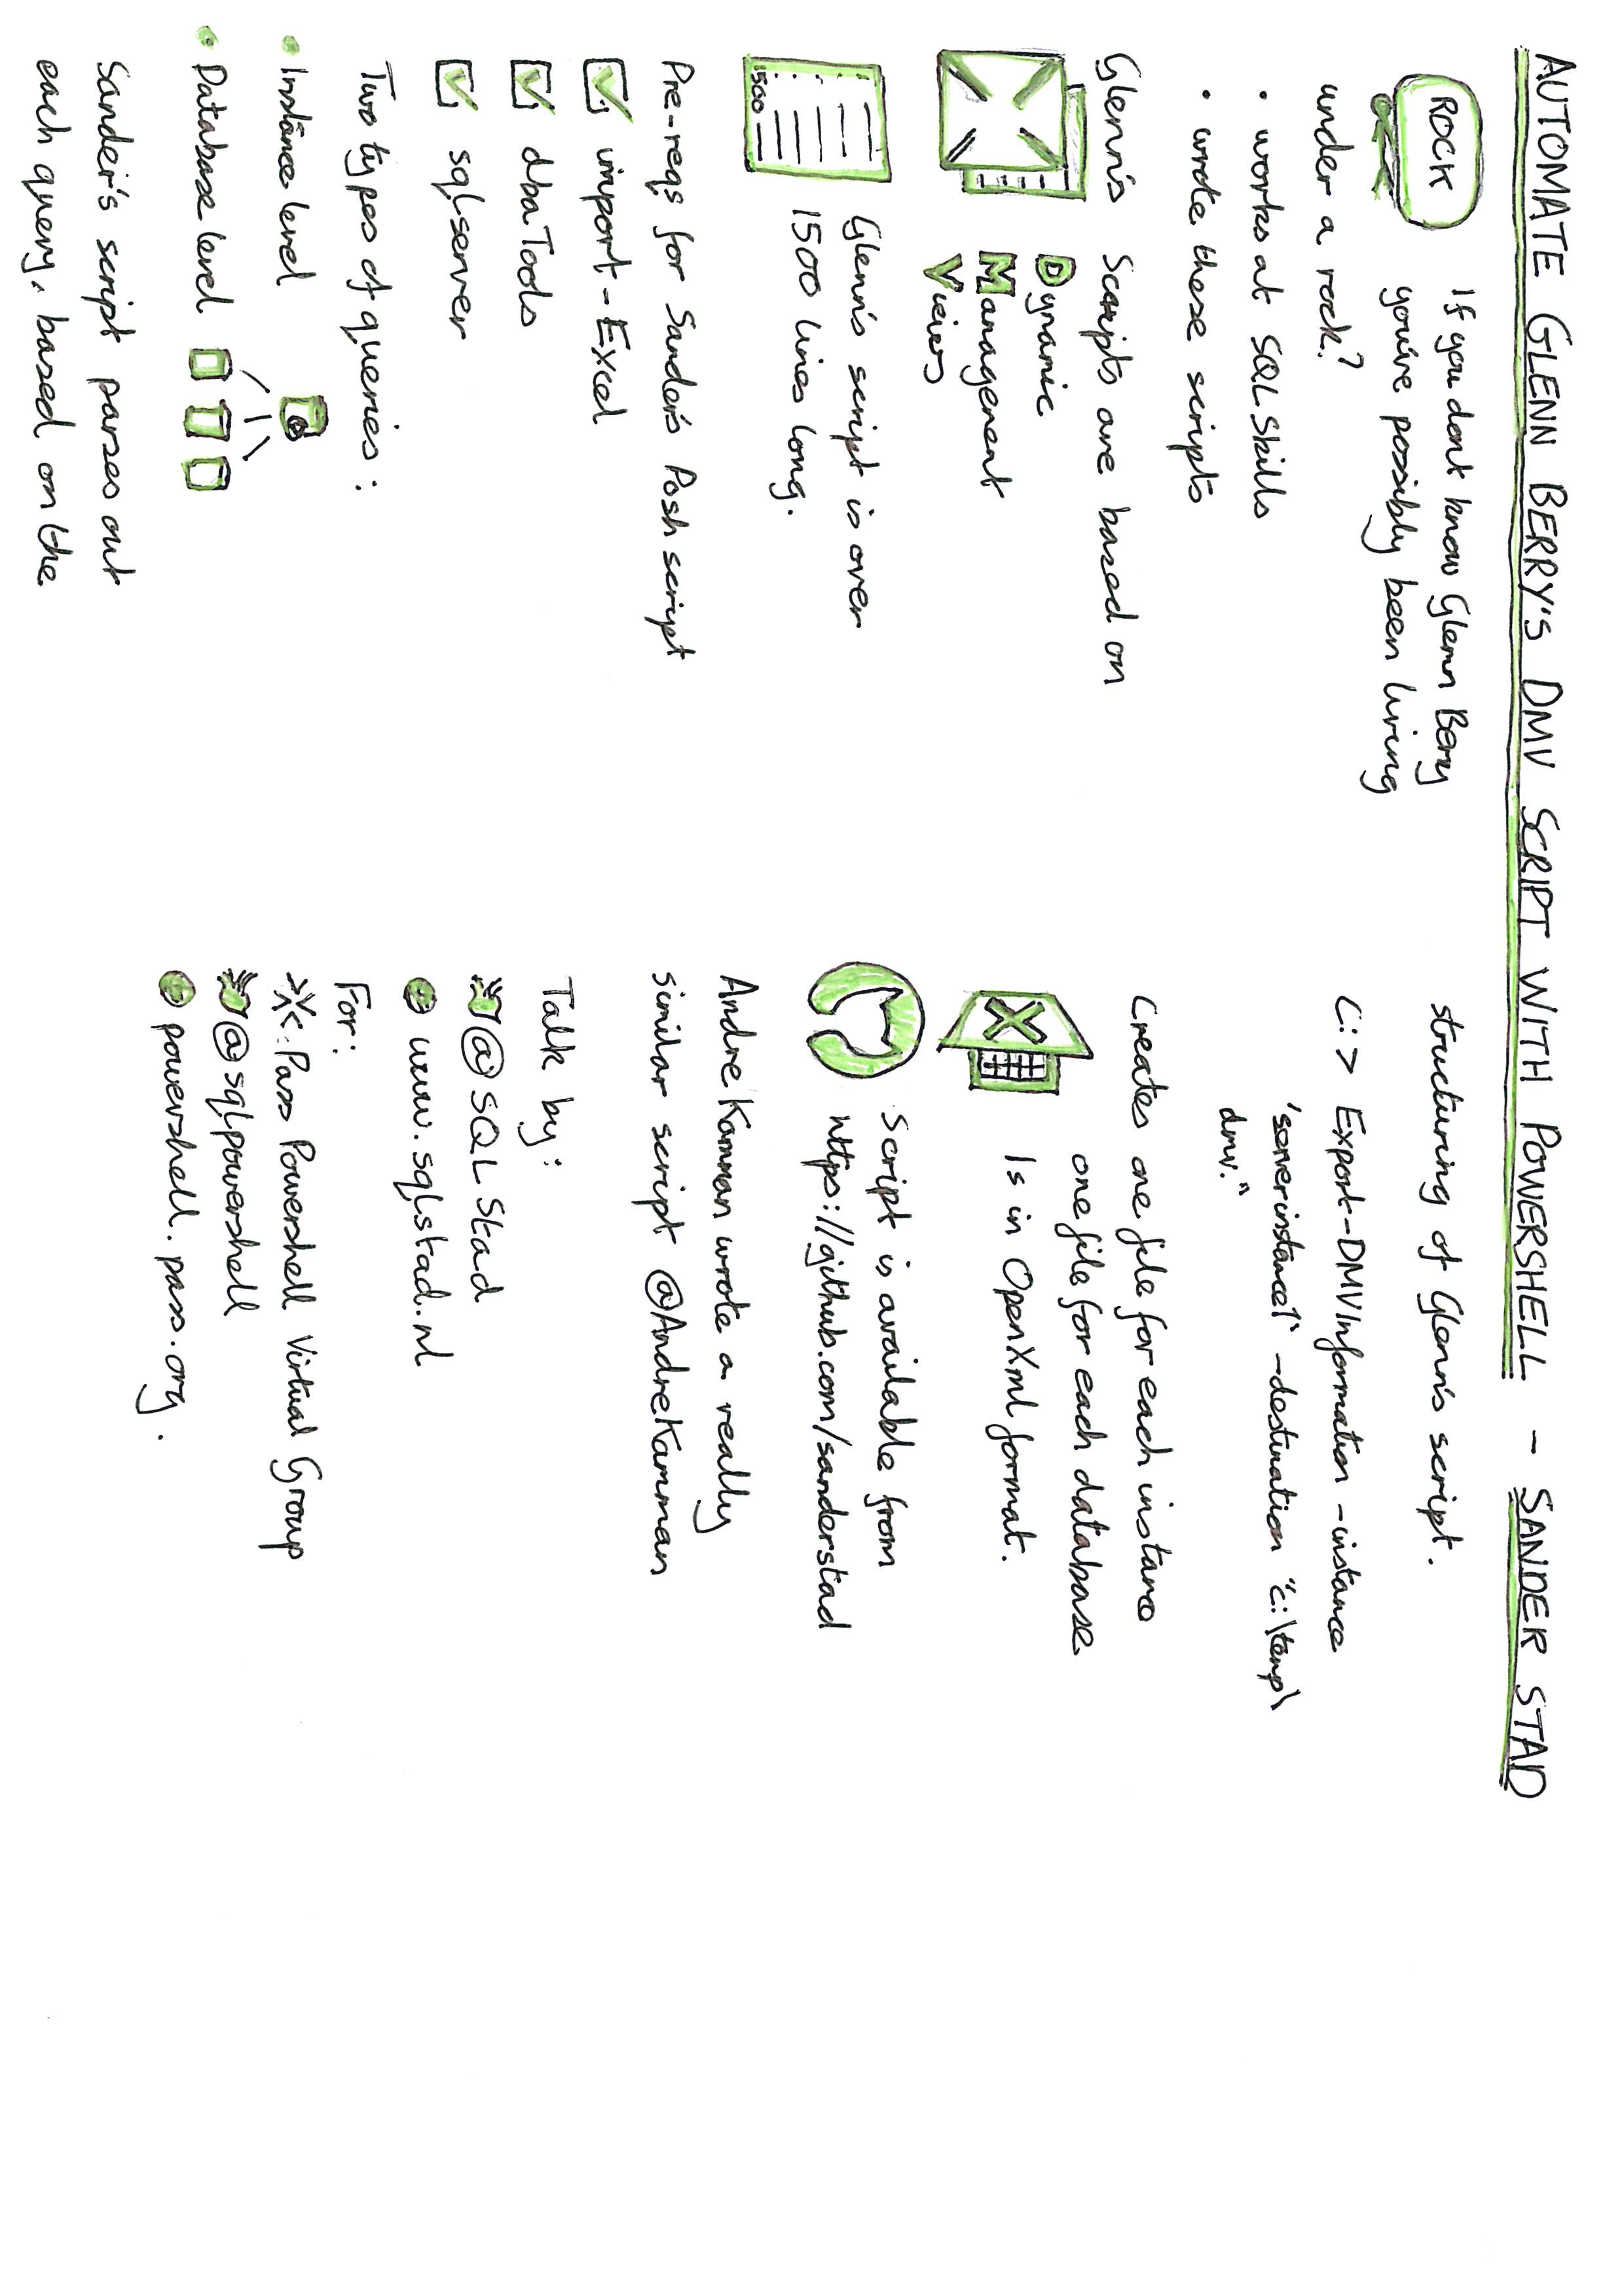 AUTOMATE GLENN BERRY'S DMV SCRIPT WITH POWERSHELL - SANDER STAD
ROCK
If you dont know Glenn Berry
you've possibly been living
under a rock?
• works at SQLSkills
• wrote these scripts
Glenn's Scripts are based on
Dynamic
Management
Views
1500
Glenn's script is over
1500 lines long.
Pre-reqs for Sander's Posh script
import-Excel
dbaTools
sqlserver
Two types of queries:
• Instance level
• Database level
Sander's script parses out
each query, based on the
structuring of Glenn's script.
C:> Export-DMVInformation -instance
'serverinstance1' -destination "c:\temp\
dmv."
Creates one file for each instance
one file for each database
X
Is in OpenXml format.
Script is available from
https://github.com/sanderstad
Andre Kamman wrote a really
similar script @AndreKamman
Talk by:
@SQLStad
www.sqlstad.nl
For:
Pass Powershell Virtual Group
@sqlpowershell
powershell.pass.org.